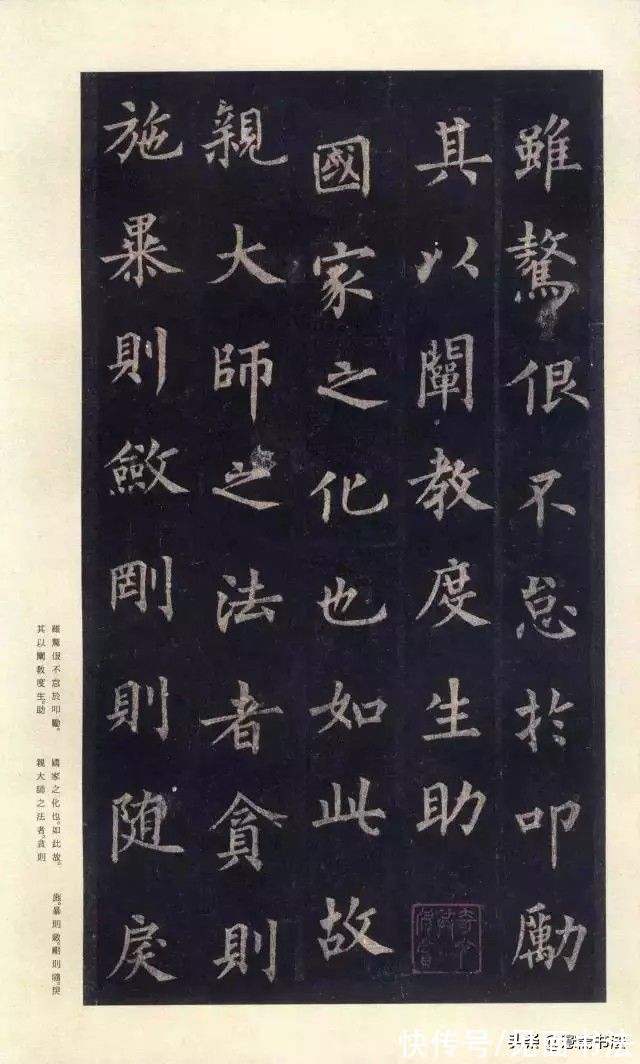 雖驁佷不怠於叩勵
其以闡教度生助
國家之化也如此故
親大師之法者貪則
施暴則斂剛則随戾
雖驁佷不怠於叩勵。
其以闡教度生。助
國家之化也。如此故。
親大師之法者。貪則
施。暴則斂。剛則隨。戾
快传号/